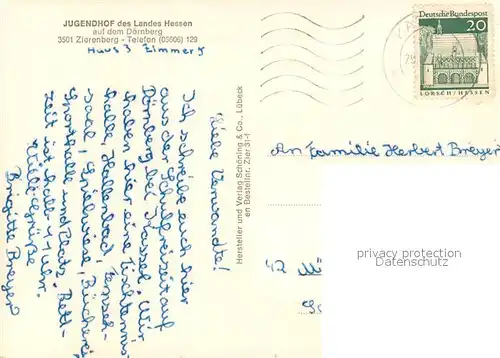 JUGENDHOF des Landes Hessen
auf dem Dörnberg
3501 Zierenberg - Telefon (05606) 129
Haus 3 Zimmer 5
Liebe Verwandte!
Ich schreibe euch hier
aus der Schulfreizeit auf
Dörnberg bei Kassel. Wir
haben hier eine Tischtennis
halle, Hallenbad, Fernseh-
saal, Spielwiese, Bücherei
Sporthalle und Platz. Bett-
zeit ist halb
Viele Grüße
Brigitte Breyer
Hersteller und Verlag Schöning & Co., Lübeck
en Bestellnr. Zier 31-1
Deutsche Bundespost
20
LORSCH / HESSEN
An Familie Herbert Breyer
42
privacy protection
watermark